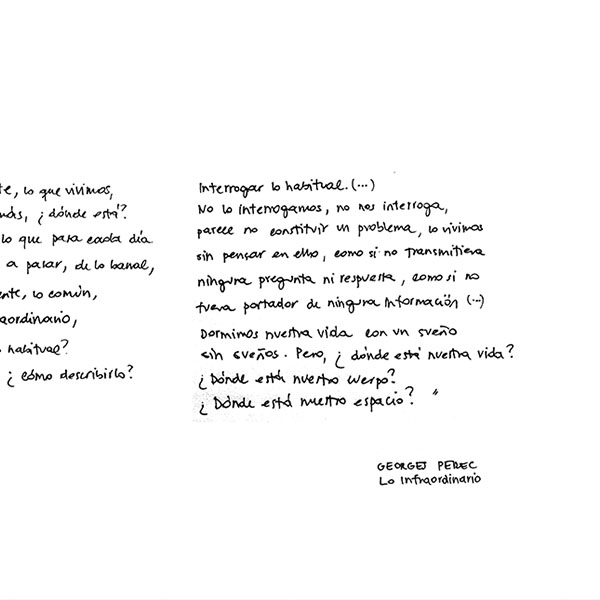 te, lo que vivimos,
más, ¿dónde está?
lo que pasa cada día
a pasar, de lo banal,
ente, lo común,
raordinario,
habitual?
¿cómo describirlo?
Interrogar lo habitual. (...)
No lo interrogamos, no nos interroga,
parece no constituir un problema, lo vivimos
sin pensar en ello, como si no transmitiera
ninguna pregunta ni respuesta, como si no
fuera portador de ninguna información (...)
Dormimos nuestra vida con un sueño
sin sueños. Pero, ¿dónde está nuestra vida?
¿Dónde está nuestro cuerpo?
¿Dónde está nuestro espacio? "
GEORGES PEREC
Lo Infraordinario